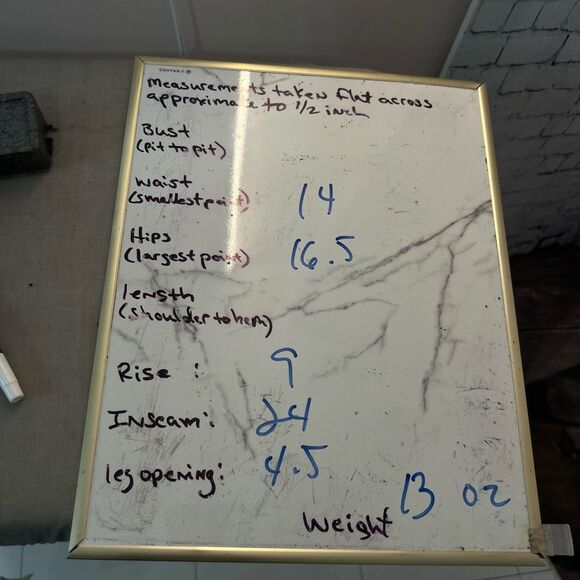 measurements taken flat across
approximate to 1/2 inch
Bust
(pit to pit)
waist
(smallest point) 14
Hips
(largest point) 16.5
length
(shoulder to hem)
Rise : 9
Inseam: 24
leg opening: 4.5
Weight 13 oz